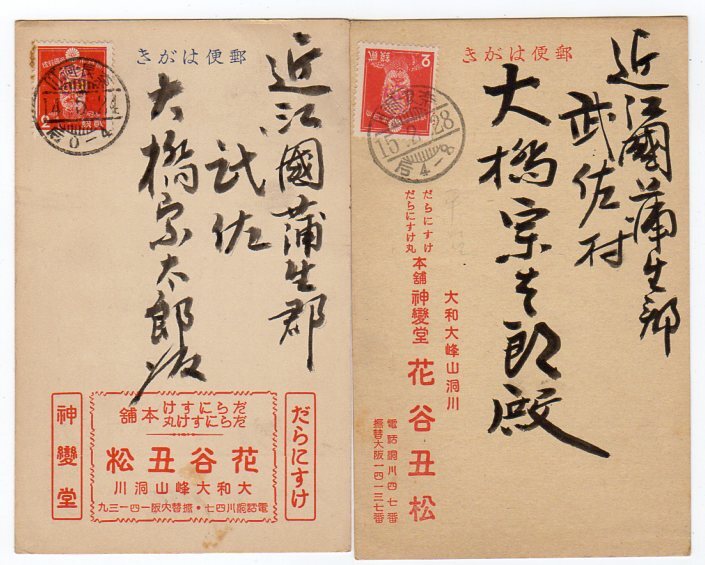 郵便はがき
近江國蒲生郡
武佐
大橋宗太郎殿
だらにすけ
だらにすけ
だらにすけ丸
本舗
花谷丑松
大和大峰山洞川
電話洞川四七・振替大阪一四一三九
神變堂
郵便はがき
近江國蒲生郡
武佐村
大橋宗太郎殿
后4-8
大和大峰山洞川
だらにすけ
だらにすけ丸
本舗 神變堂 花谷丑松
電話洞川四七番
振替大阪一四一三七番